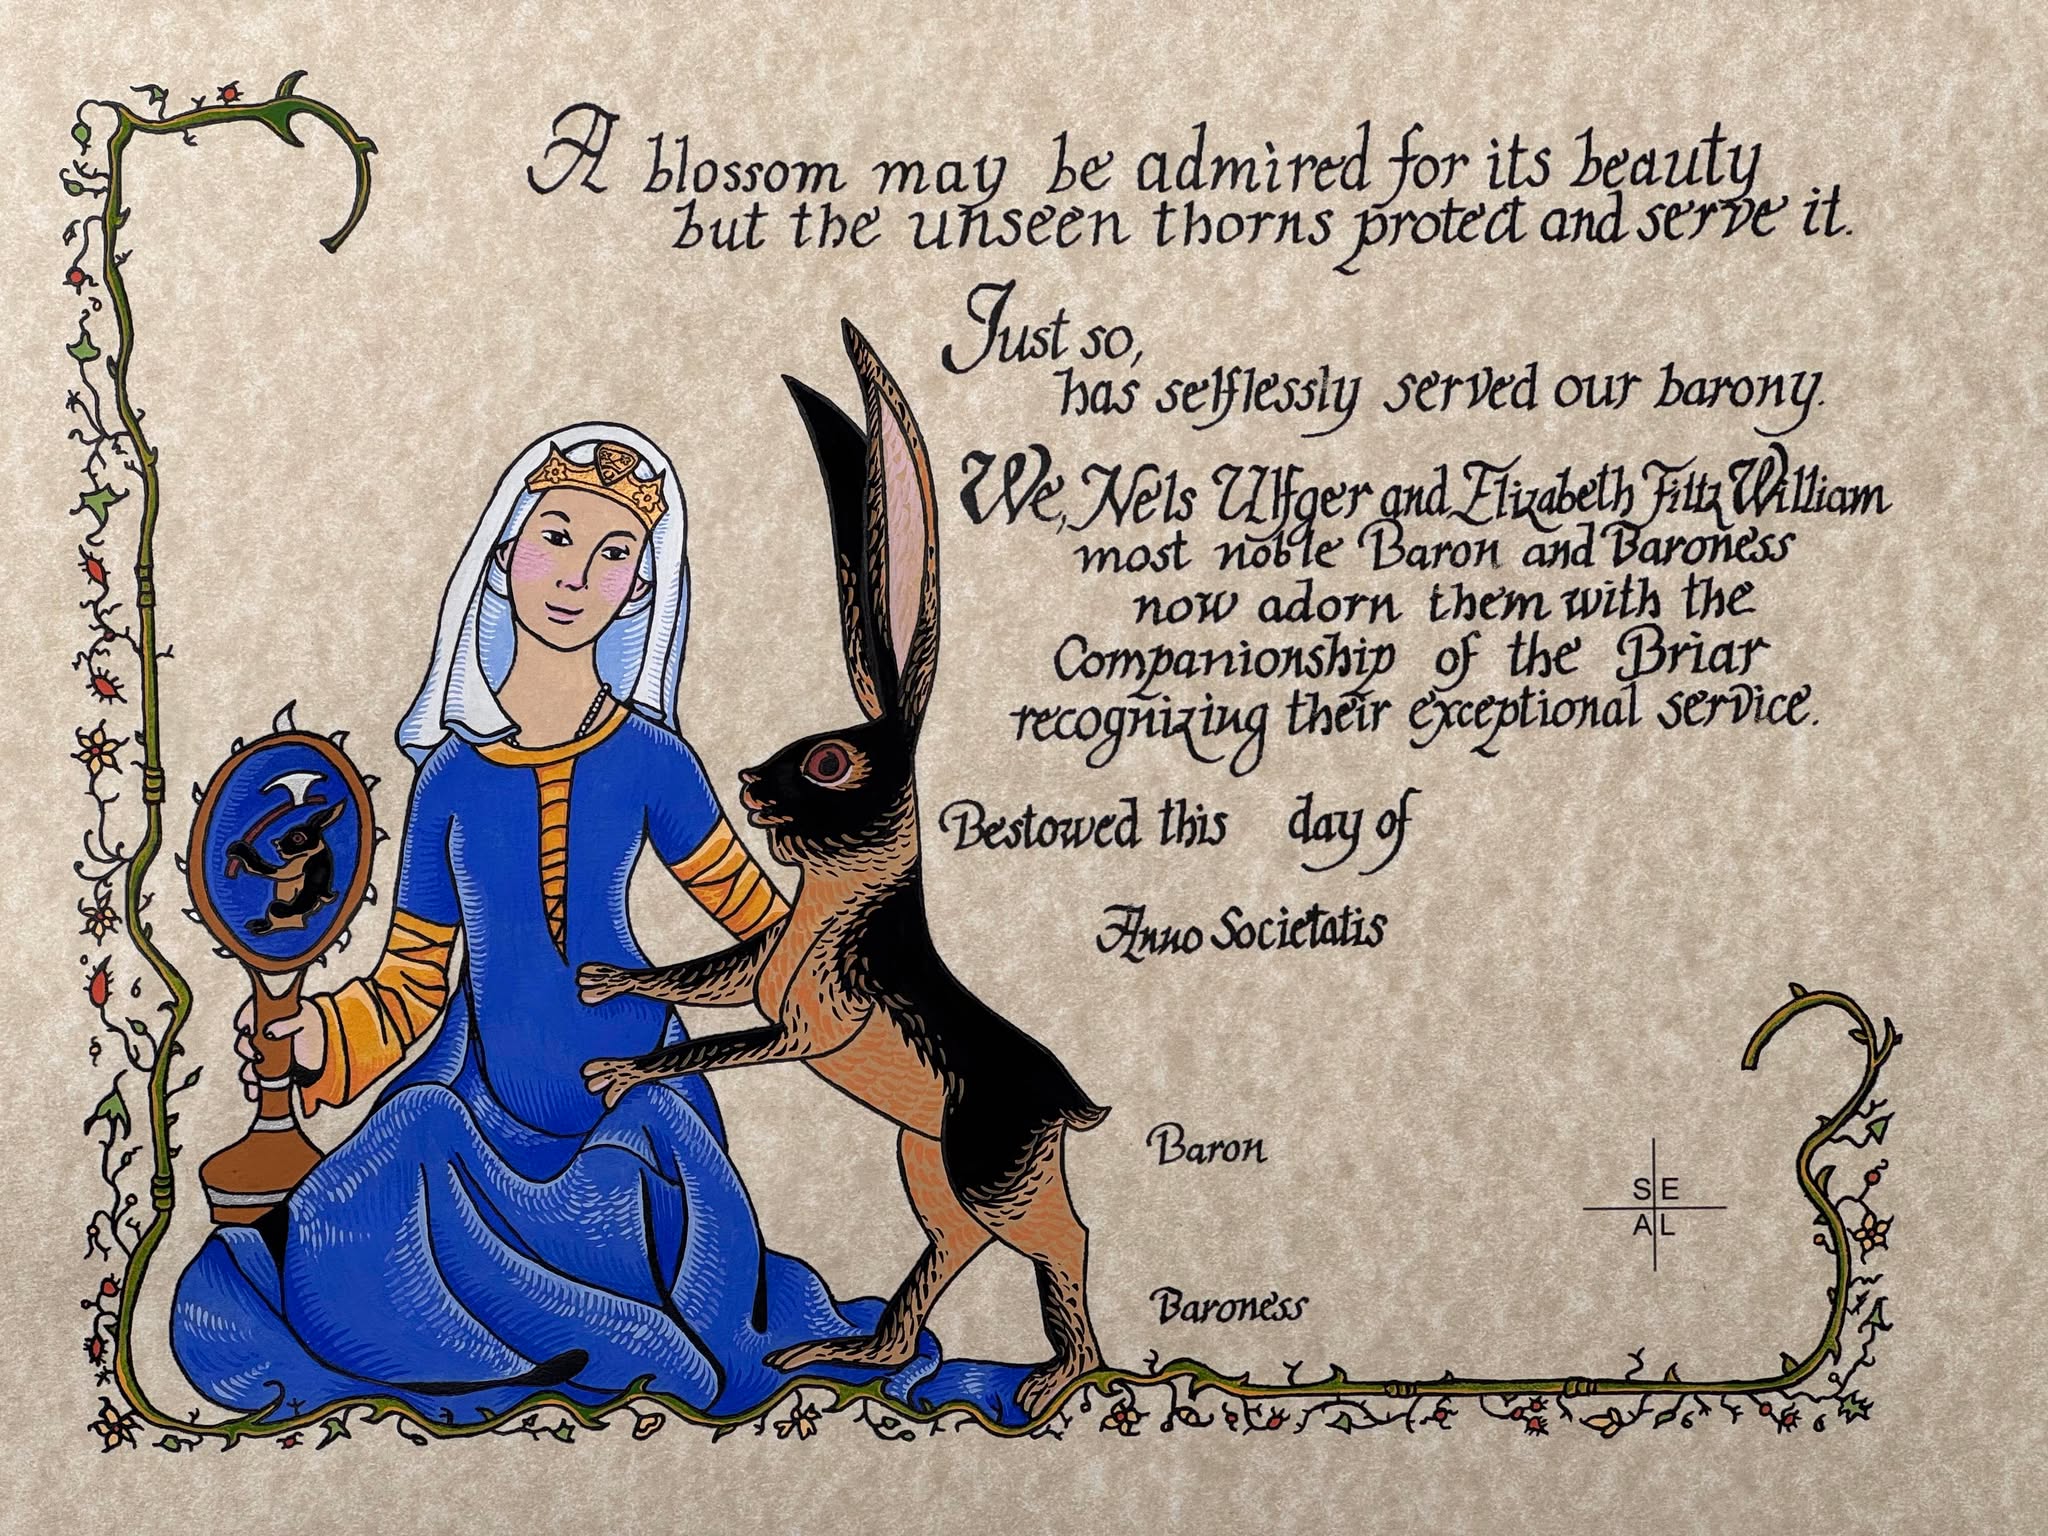 A blossom may be admired for its beauty
but the unseen thorns protect and serve it.
Just so,
has selflessly served our barony.
We, Nels Ulfger and Elizabeth FiltzWilliam
most noble Baron and Baroness
now adorn them with the
Companionship of the Briar
recognizing their exceptional service.
Bestowed this day of
Anno Societatis
Baron
SE
AL
Baroness